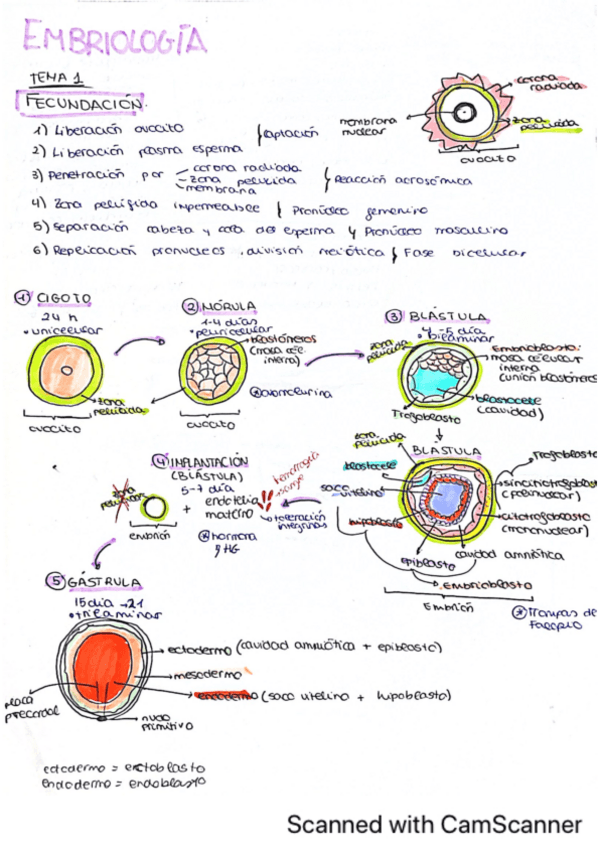 EMBRIOLOGÍA
TEMA 1
FECUNDACIÓN.
corona radiada
zona pelúcida
membrana nuclear
ovocito
1) Liberación ovocito } captación
2) Liberación plasma esperma
3) Penetración por corona radiada
zona pelucida } Reacción acrosómica
membrana
4) Zona pelúgida impermeable } Pronúcleo femenino
5) Separación cabeza y cola del esperma } Pronúcleo masculino
6) Replicación pronucleos. división meiótica } Fase bicelular
1) CIGOTO
24 h
• unicelular
zona pelucida
ovocito
2) MÓRULA
1-4 días
• pluricelular
blastómeros
(masa cél. interna)
ovocito
3) BLÁSTULA
4-5 día
• bilaminar
zona pelúcida
Embrioblasto:
masa celular
interna
(unión blastómeros
blastocele
(cavidad)
Trofoblasto
BLÁSTULA
zona pelucida
blastocele
saco vitelino
hipoblasto
epiblasto
Trofoblasto
sincitiotrofoblasto
(polinuclear)
citotrofoblasto
(mononuclear)
cavidad amniótica
Embrioblasto
Embrión
Trompas de Falopio
4) IMPLANTACIÓN
(BLÁSTULA)
5-7 día
zona pelúcida
embrión
+
endotelio
materno
hemorragia
sangre
integrinas
hormona
5) GÁSTRULA
15 día → 21
• trilaminar
ectodermo (cavidad amniótica + epiblasto)
mesodermo
endodermo (saco vitelino + hipoblasto)
placa precordal
nudo primitivo
ectodermo = ectoblasto
endodermo = endoblasto
Scanned with CamScanner